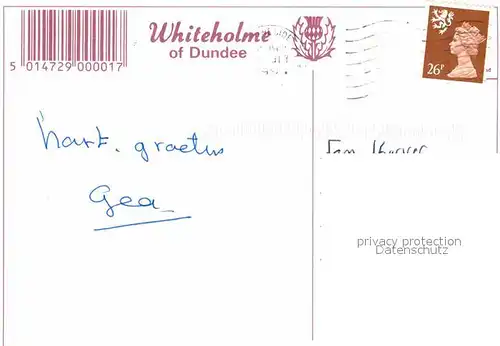 Whiteholme
of Dundee
5 014729 000017
26P
hart. groetus
Gea
privacy protection
Datenschutz